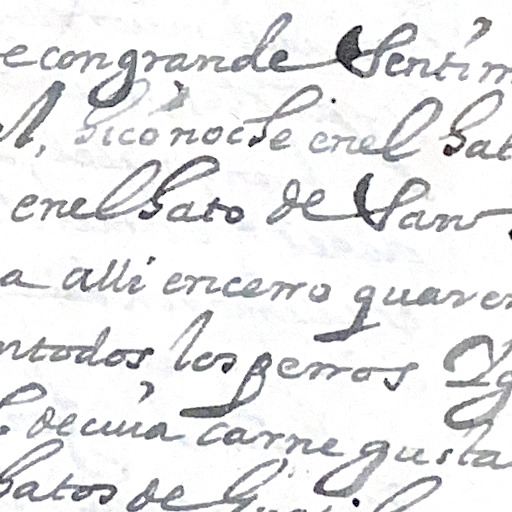 e con grande Sentim
hico noche en el hat
en el hato de San
a alli encerro quaren
ntodos los perros Yg
decuia carne gusta
hatos de